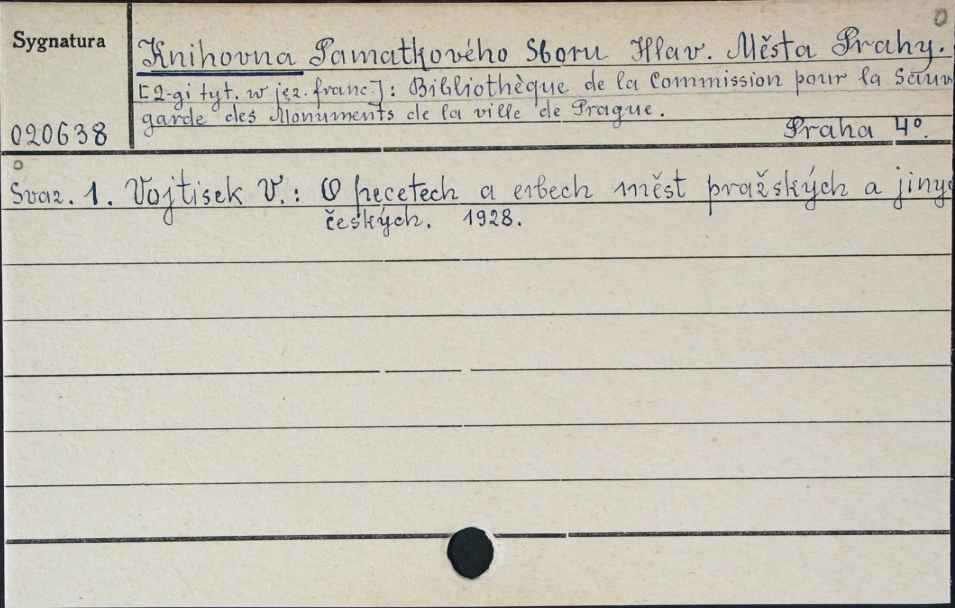 0
Sygnatura
Knihovna Památkového Sboru Hlav. Města Prahy.
[2-gi tyt. w jęz. franc.]: Bibliothèque de la Commission pour la Sauv
garde des Monuments de la ville de Prague.
020638
Praha 4°.
Svaz. 1. Vojtisek V.: O pečetech a erbech měst pražských a jinyc
českých. 1928.